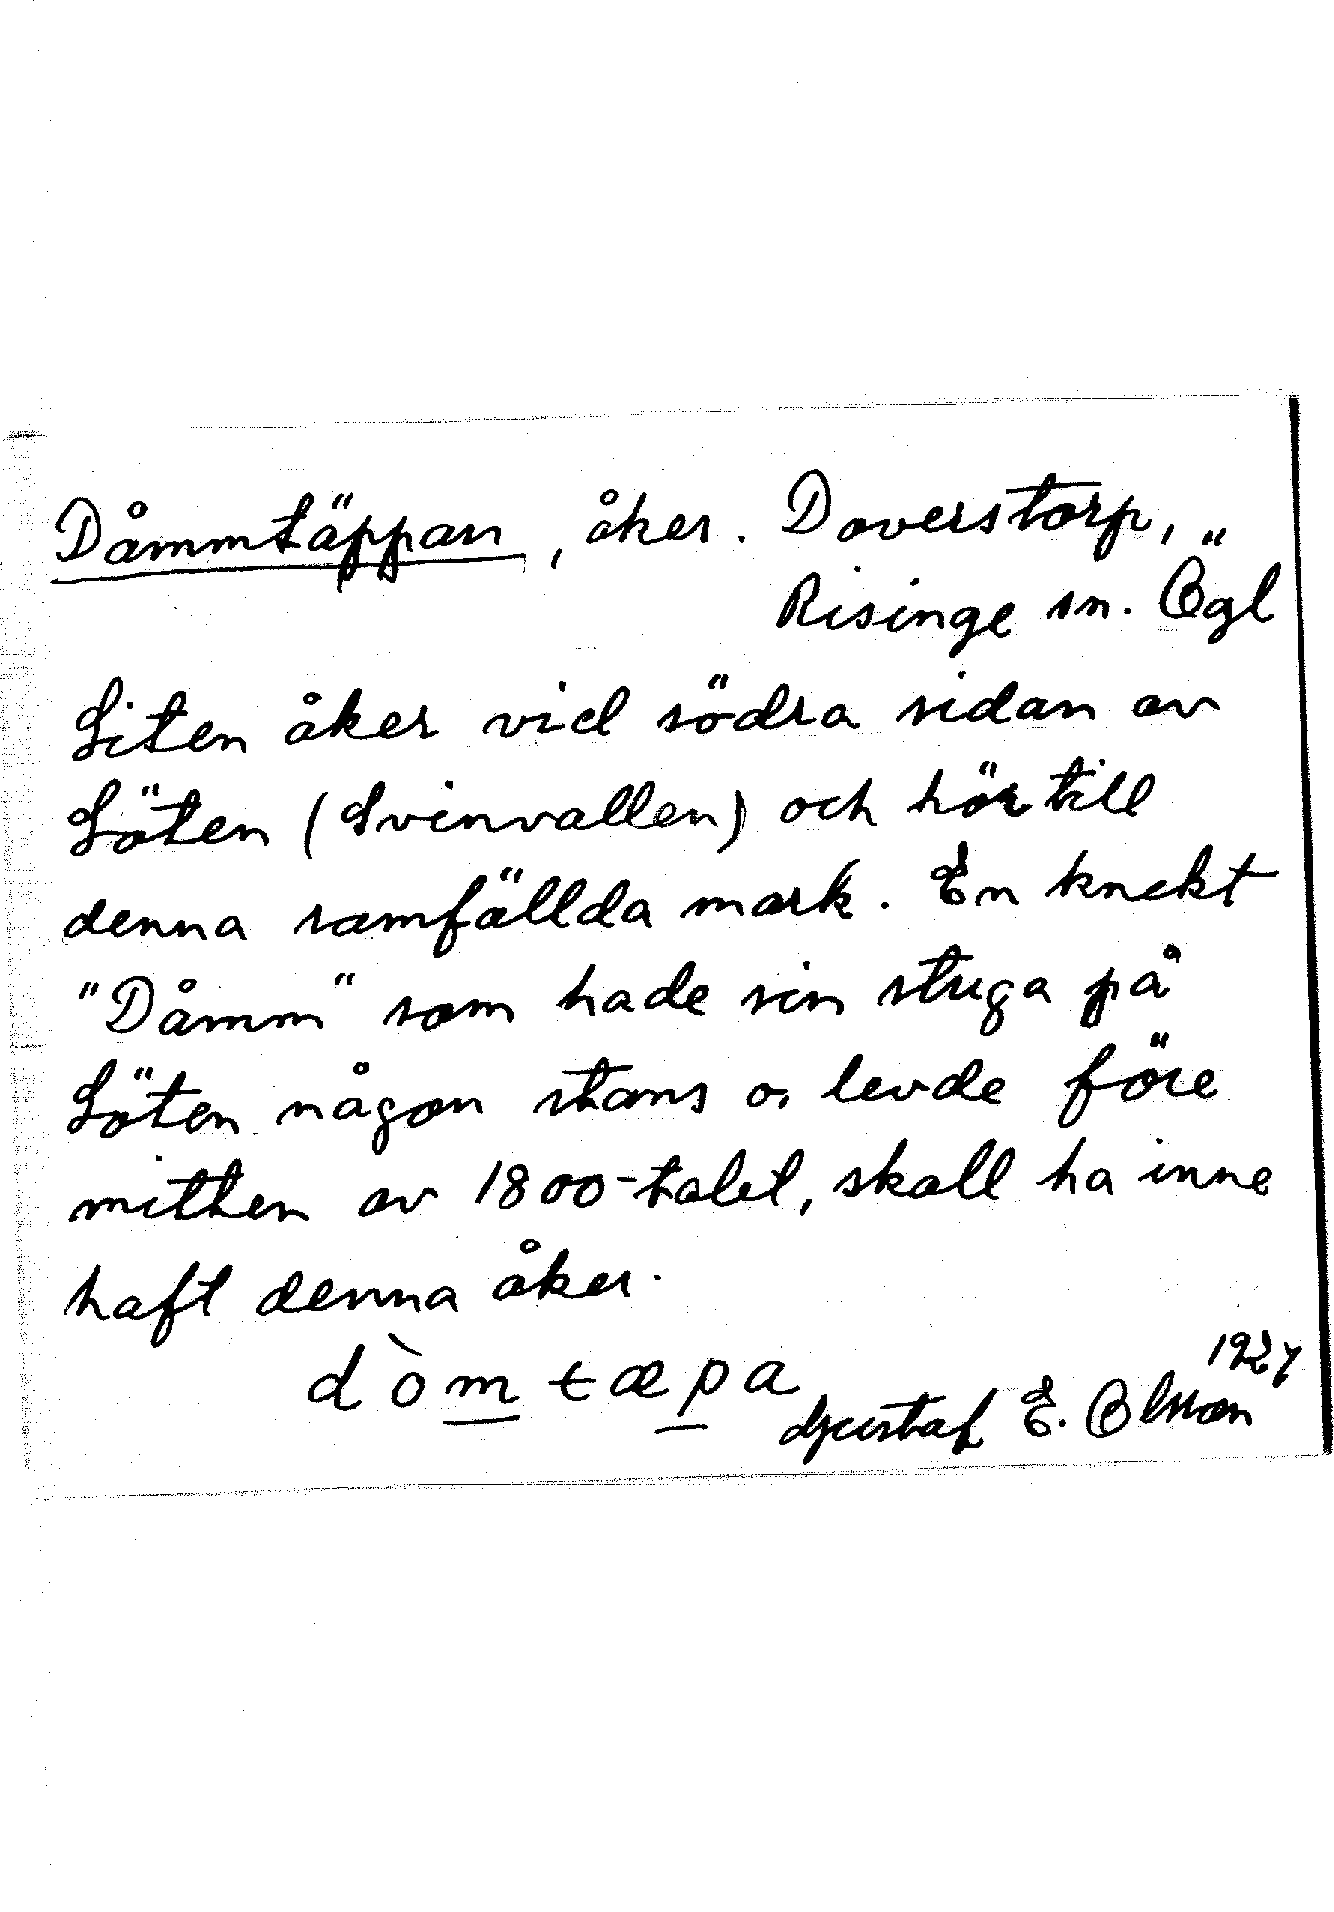 Dåmmtäppan, åker. Doverstorp,
Risinge sn. Ögl
Liten åker vid södra sidan av
Löten (Svinvallen) och hör till
denna samfällda mark. En knekt
"Dåmm" som hade sin stuga på
Löten någon stans o. levde före
mitten av 1800-talet, skall ha inne
haft denna åker.
dòmtæpa
1927
Gustaf E. Olsson